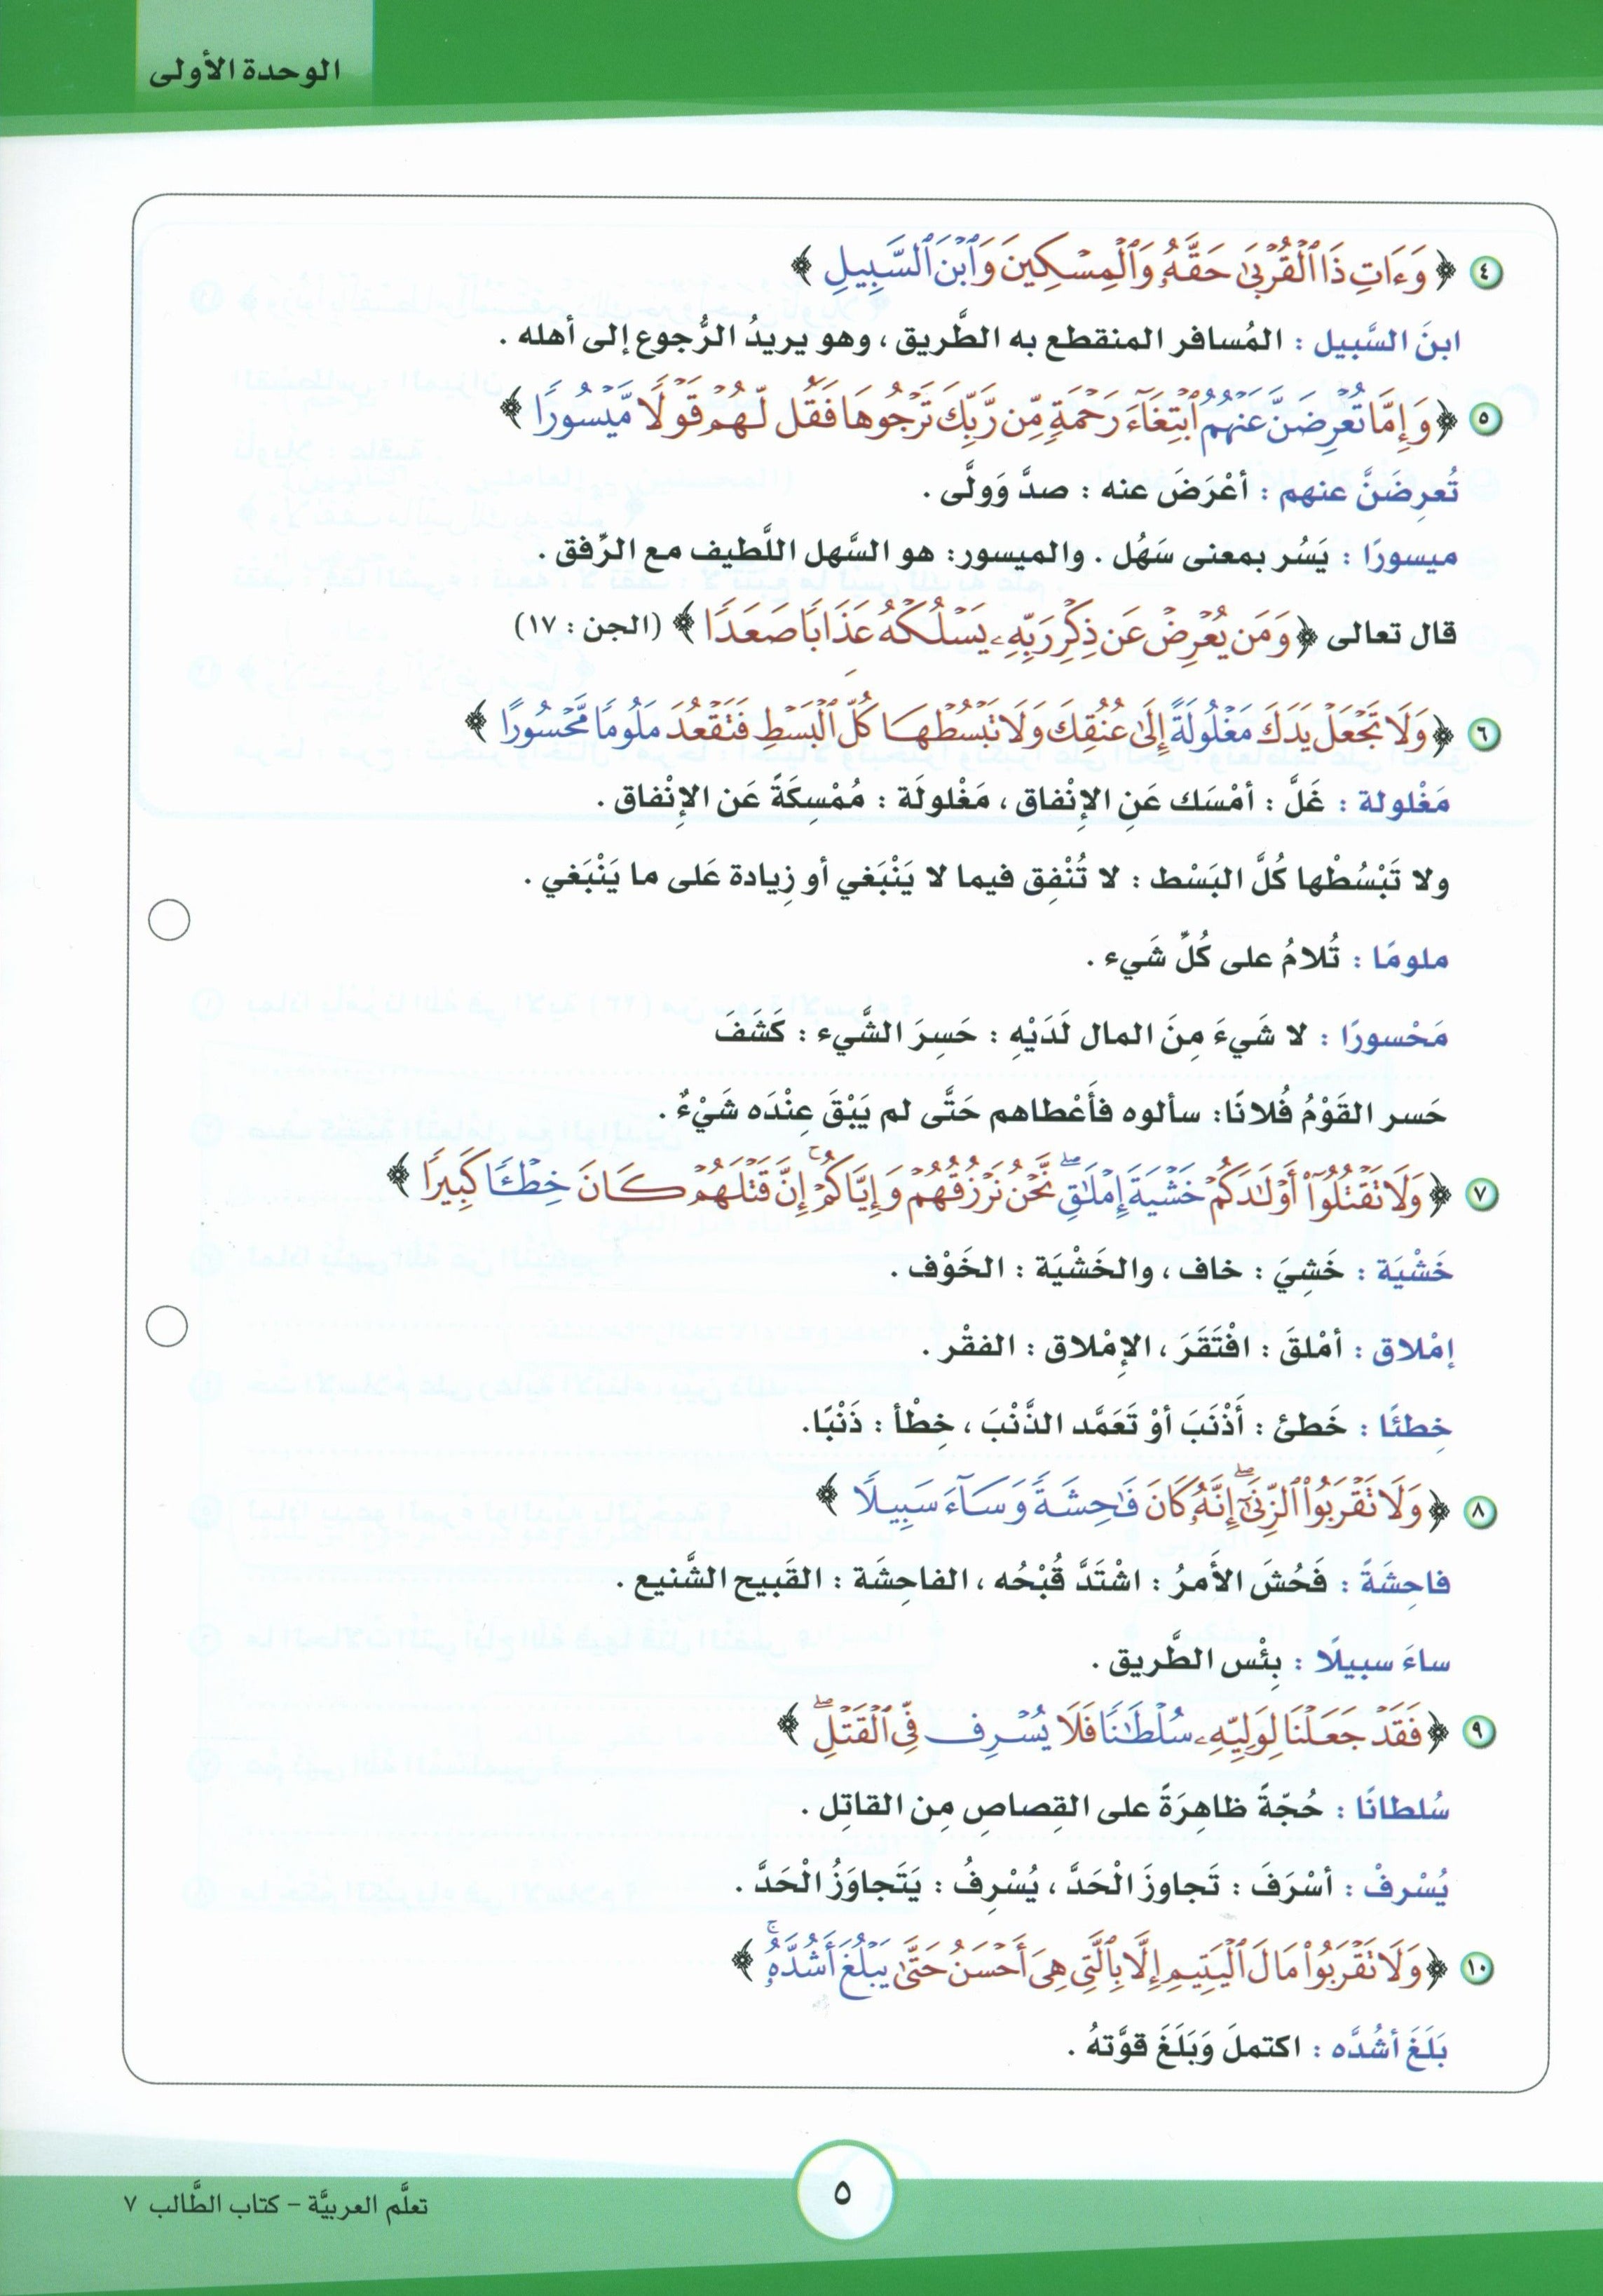 الوحدة الأولى
٤ ﴿ وَءَاتِ ذَا ٱلْقُرْبَىٰ حَقَّهُۥ وَٱلْمِسْكِينَ وَٱبْنَ ٱلسَّبِيلِ ﴾
ابنَ السَّبيل : المُسافر المنقطع به الطَّريق ، وهو يريدُ الرُّجوع إلى أهله .
٥ ﴿ وَإِمَّا تُعْرِضَنَّ عَنْهُمُ ٱبْتِغَآءَ رَحْمَةٍ مِّن رَّبِّكَ تَرْجُوهَا فَقُل لَّهُمْ قَوْلًا مَّيْسُورًا ﴾
تُعرِضنَّ عنهم : أعْرضَ عنه : صدَّ وَولَّى .
ميسورًا : يَسُر بمعنى سَهُل . والميسور: هو السَّهل اللَّطيف مع الرِّفق .
قال تعالى ﴿ وَمَن يُعْرِضْ عَن ذِكْرِ رَبِّهِۦ يَسْلُكْهُ عَذَابًا صَعَدًا ﴾ (الجن : ١٧)
٦ ﴿ وَلَا تَجْعَلْ يَدَكَ مَغْلُولَةً إِلَىٰ عُنُقِكَ وَلَا تَبْسُطْهَا كُلَّ ٱلْبَسْطِ فَتَقْعُدَ مَلُومًا مَّحْسُورًا ﴾
مَغْلولة : غَلَّ : أمْسَك عَنِ الإنْفاق ، مَغْلولَة : مُمْسِكَةً عَن الإنْفاق .
ولا تَبْسُطْها كُلَّ البَسْط : لا تُنْفِق فيما لا يَنْبَغي أو زِيادة عَلى ما يَنْبَغي .
ملومًا : تُلامُ على كُلِّ شَيء .
مَحْسورًا : لا شَيءَ مِنَ المال لَدَيْهِ : حَسِرَ الشَّيء : كَشَفَ
حَسر القَوْمُ فُلانًا: سألوه فأَعْطاهم حَتَّى لم يَبْقَ عِنْدَه شَيْءٌ .
٧ ﴿ وَلَا تَقْتُلُوٓا۟ أَوْلَٰدَكُمْ خَشْيَةَ إِمْلَٰقٍ ۖ نَّحْنُ نَرْزُقُهُمْ وَإِيَّاكُمْ ۚ إِنَّ قَتْلَهُمْ كَانَ خِطْـًٔا كَبِيرًا ﴾
خَشْيَة : خَشِيَ : خاف ، والخَشْيَة : الخَوْف .
إمْلاق : أمْلقَ : افْتَقَرَ ، الإمْلاق : الفقْر .
خِطئًا : خَطئ : أَذْنَبَ أوْ تَعَمَّد الذَّنْبَ ، خِطْأ : ذَنْبًا.
٨ ﴿ وَلَا تَقْرَبُوا۟ ٱلزِّنَىٰٓ ۖ إِنَّهُۥ كَانَ فَٰحِشَةً وَسَآءَ سَبِيلًا ﴾
فاحِشَةً : فَحُشَ الأَمرُ : اشْتَدَّ قُبْحُه ، الفاحِشَة : القَبيح الشَّنيع .
ساءَ سبيلًا : بِئْس الطَّريق .
٩ ﴿ فَقَدْ جَعَلْنَا لِوَلِيِّهِۦ سُلْطَٰنًا فَلَا يُسْرِف فِّى ٱلْقَتْلِ ۖ ﴾
سُلطانًا : حُجّةً ظاهِرَةً على القِصاصِ مِن القاتِل .
يُسْرفْ : أسْرَفَ : تَجاوزَ الْحَدَّ ، يُسْرِفُ : يَتَجاوَزُ الْحَدَّ .
١٠ ﴿ وَلَا تَقْرَبُوا۟ مَالَ ٱلْيَتِيمِ إِلَّا بِٱلَّتِى هِىَ أَحْسَنُ حَتَّىٰ يَبْلُغَ أَشُدَّهُۥ ۚ ﴾
بَلَغَ أشُدَّه : اكتملَ وَبَلَغَ قوَّتهُ .
٥
تعلَّم العربيَّة – كتاب الطَّالب ٧